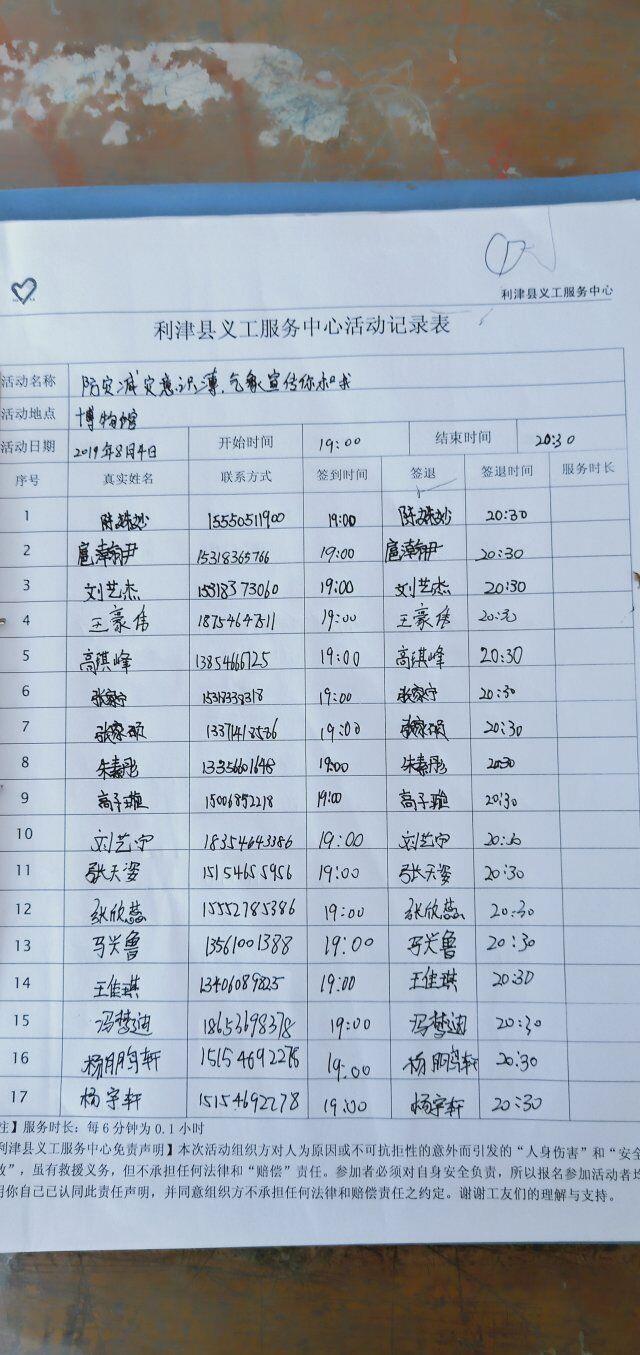 利津县义工服务中心
利津县义工服务中心活动记录表
活动名称 防灾减灾意识薄,气象宣传你和我
活动地点 博物馆
活动日期 2019年8月4日 开始时间 19:00 结束时间 20:30
序号 真实姓名 联系方式 签到时间 签退 签退时间 服务时长
1 15550511900 19:00 20:30
2 扈瀚尹 15318365766 19:00 扈瀚尹 20:30
3 刘艺杰 15318373060 19:00 刘艺杰 20:30
4 王豪伟 18754647511 19:00 王豪伟 20:30
5 高琪峰 1385466725 19:00 高琪峰 20:30
6 张家宁 15318339318 19:00 张家宁 20:30
7 张家硕 19:00 张家硕 20:30
8 朱嘉彤 13356601648 19:00 朱嘉彤 20:30
9 高子璇 15006852218 19:00 高子璇 20:30
10 刘艺宁 18354643386 19:00 刘艺宁 20:30
11 张天姿 15154655956 19:00 张天姿 20:30
12 张欣蕊 15552785386 19:00 张欣蕊 20:30
13 马兴鲁 13561001388 19:00 马兴鲁 20:30
14 王佳琪 13406089825 19:00 王佳琪 20:30
15 冯梦迪 18653698378 19:00 冯梦迪 20:30
16 杨鹏轩 15154692278 19:00 杨鹏轩 20:30
17 杨宇轩 15154692278 19:00 杨宇轩 20:30
注】服务时长:每6分钟为0.1小时
利津县义工服务中心免责声明】本次活动组织方对人为原因或不可抗拒性的意外而引发的“人身伤害”和“安全
故”,虽有救援义务,但不承担任何法律和“赔偿”责任。参加者必须对自身安全负责,所以报名参加活动者均
明你自己已认同此责任声明,并同意组织方不承担任何法律和赔偿责任之约定。谢谢工友们的理解与支持。